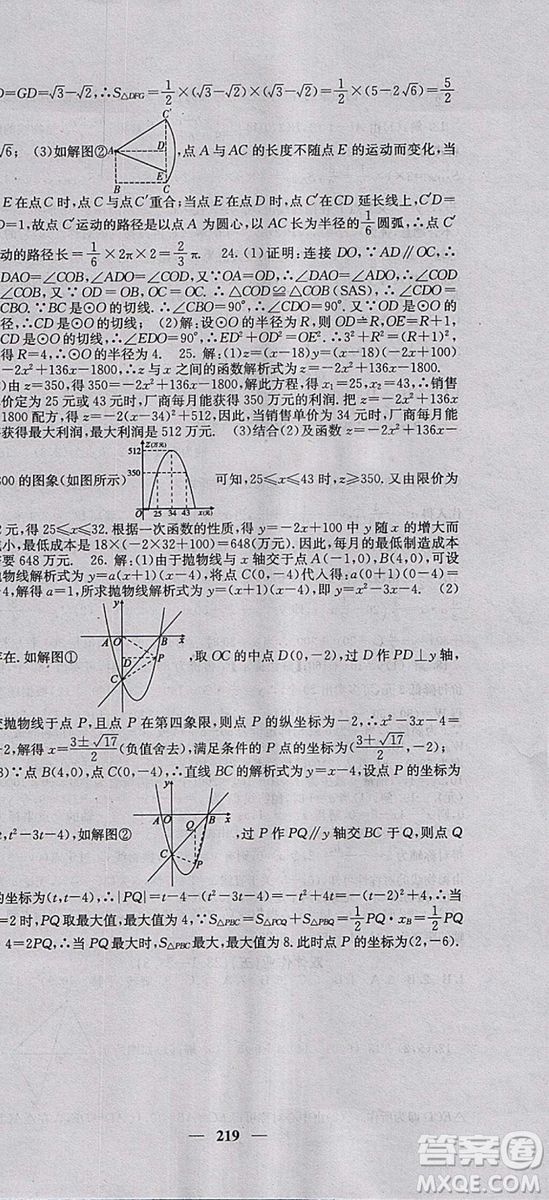 D=GD=√3-√2,∴S△DFG=1/2×(√3-√2)×(√3-√2)=1/2×(5-2√6)=5/2
√6; (3)如解图② ,点 A 与 AC 的长度不随点 E 的运动而变化,当
C
A
D
E
B
C
E 在点 C 时,点 C 与点 C′重合;当点 E 在点 D 时,点 C′在 CD 延长线上,C′D=
D=1,故点 C′运动的路径是以点 A 为圆心,以 AC 长为半径的 1/6 圆弧,∴点 C′
动的路径长=1/6×2π×2=2/3π. 24. (1)证明:连接 DO,∵AD∥OC,∴
DAO=∠COB,∠ADO=∠COD. 又∵OA=OD,∴∠DAO=∠ADO,∴∠COD
∠COB. 又∵OD=OB,OC=OC,∴△COD≌△COB(SAS),∴∠CDO=
CBO. ∵BC 是⊙O 的切线,∴∠CBO=90°,∴∠CDO=90°,又∵OD 为⊙O 的
径,∴CD 是⊙O 的切线; (2)解:设⊙O 的半径为 R,则 OD=R,OE=R+1,
CD 是⊙O 的切线,∴∠EDO=90°,∴ED²+OD²=OE²,∴3²+R²=(R+1)²,
得 R=4,∴⊙O 的半径为 4. 25. 解:(1)z=(x-18)y=(x-18)(-2x+100)=
-2x²+136x-1800,∴z 与 x 之间的函数解析式为 z=-2x²+136x-1800.
)由 z=350,得 350=-2x²+136x-1800,解此方程,得 x₁=25,x₂=43,∴销售
价定为 25 元或 43 元时,厂商每月能获得 350 万元的利润. 把 z=-2x²+136x-
1800 配方,得 z=-2(x-34)²+512,∴当销售单价为 34 元时,厂商每月能
获得最大利润,最大利润是 512 万元. (3)结合(2)及函数 z=-2x²+136x-
800 的图象(如图所示) 可知,25≤x≤43 时,z≥350. 又由限价为
Z(万元)
512
350
O 25 34 43 x(元)
2 元,得 25≤x≤32. 根据一次函数的性质,得 y=-2x+100 中 y 随 x 的增大而
小,最低成本是 18×(-2×32+100)=648(万元). 因此,每月的最低制造成本
要 648 万元. 26. 解:(1)由于抛物线与 x 轴交于点 A(-1,0),B(4,0),可设
抛物线解析式为 y=a(x+1)(x-4),将点 C(0,-4)代入得:a(0+1)(0-4)=
4,解得 a=1,所求抛物线解析式为 y=(x+1)(x-4),即 y=x²-3x-4. (2)
存在.如解图① ,取 OC 的中点 D(0,-2),过 D 作 PD⊥y 轴,
y
A O B x
D P
C
交抛物线于点 P,且点 P 在第四象限,则点 P 的纵坐标为-2,∴x²-3x-4=
-2,解得 x=(3±√17)/2(负值舍去),满足条件的点 P 的坐标为((3+√17)/2,-2);
3)∵点 B(4,0),点 C(0,-4),∴直线 BC 的解析式为 y=x-4,设点 P 的坐标为
t,t²-3t-4),如解图② ,过 P 作 PQ∥y 轴交 BC 于 Q,则点 Q
y
A O B x
Q
C
P
的坐标为(t,t-4),∴|PQ|=t-4-(t²-3t-4)=-t²+4t=-(t-2)²+4,∴当
=2 时,PQ 取最大值,最大值为 4,∵S△PBC=S△PCQ+S△PBQ=1/2PQ·xB=1/2PQ
4=2PQ,∴当 PQ 最大时,S△PBC最大,最大值为 8.此时点 P 的坐标为(2,-6).
219
答案圈
MXQE.COM